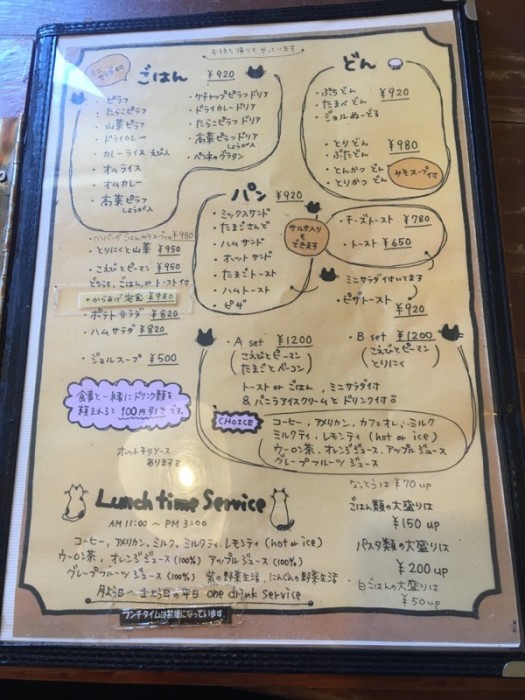 ごはん ¥920
・ピラフ
・たらこピラフ
・山菜ピラフ
・ドライカレー
・カレーライス えび入
・オムライス
・オムカレー
・高菜ピラフ しょうが入
・ケチャップピラフドリア
・ドライカレードリア
・たらこピラフドリア
・高菜ピラフドリア しょうが入
・ペンネグラタン
どん
・ぶちどん ¥920
・たまべどん
・ジョルぬーどる
・とりどん ¥980
・ぶたどん
・とんかつ どん
・とりかつ どん
みそスープ付
パン ¥920
・ミックスサンド
・たまごさんど
・ハムサンド
・ホットサンド
・たまごトースト
・ハムトースト
・ピザ
サルサ入りもできます
・チーズトースト ¥780
・トースト ¥650
ミニサラダ付いてます
・ピザトースト ¥920
・とりにくと山菜 ¥950
・こえびとピーマン ¥950
どちらも、ごはん or トースト付
・からあげ定食 ¥980
・ポテトサラダ ¥820
・ハムサラダ ¥820
・ジョルスープ ¥500
・A set ¥1200
(こえびとピーマン
たまごとベーコン)
・B set ¥1200
(こえびとピーマン
とりにく)
トースト or ごはん、ミニサラダ付
& バニラアイスクリームとドリンク付
CHOICE
コーヒー、アメリカン、カフェオレ、ミルク
ミルクティ、レモンティ (hot or ice)
ウーロン茶、オレンジジュース、アップルジュース
グレープフルーツ ジュース
食事と一緒にドリンク類を
頼まれると100円引きです。
ホットチリソース
あります
Lunch time Service
AM 11:00 ~ PM 3:00
コーヒー、アメリカン、ミルク、ミルクティ、レモンティ (hot or ice)
ウーロン茶、オレンジジュース (100%) アップルジュース (100%)
グレープフルーツ ジュース (100%) 紫の野菜生活、にんじんの野菜生活
月よう日~土よう日の平日 one drink service
ランチタイムは禁煙になっています
なっとうは¥70 up
ごはん類の大盛りは
¥150 up
パスタ類の大盛りは
¥200 up
白ごはんの大盛りは
¥50 up